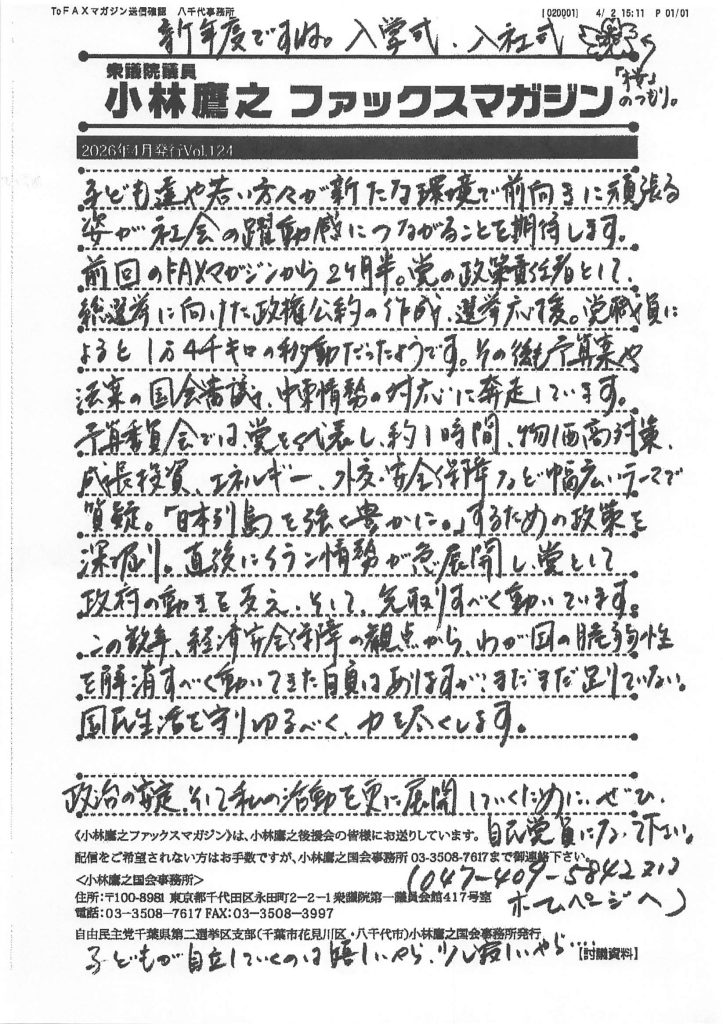 ToFAXマガジン送信確認　八千代事務所　[020001]　4/ 2 15:11　P 01/01
新年度ですね。入学式、入社式
「桜」のつもり。
衆議院議員
小林鷹之 ファックスマガジン
2026年4月発行Vol.124
子ども達や若い方々が新たな環境で前向きに頑張る
姿が社会の躍動感につながることを期待します。
前回のFAXマガジンから2ヶ月半。党の政策責任者として、
総選挙に向けた政権公約の作成、選挙応援。党職員に
よると1万4千キロの移動だったようです。その後も予算案や
法案の国会審議、中東情勢の対応に奔走しています。
予算委員会では、党を代表し、約1時間、物価高対策、
成長投資、エネルギー、外交・安全保障など幅広いテーマで
質疑。「日本列島を強く豊かに。」するための政策を
深掘り。直後にイラン情勢が急展開し、党として
政府の動きを支え、そして、先取りすべく動いています。
この数年、経済安全保障の観点から、わが国の脆弱性
を解消すべく動いてきた自負はありますが、まだまだ足りていない。
国民生活を守りゆるべく、力を尽くします。
政治の安定、そして私の活動を更に展開していくために、ぜひ、
自民党員になって下さい。
《小林鷹之ファックスマガジン》は、小林鷹之後援会の皆様にお送りしています。
配信をご希望されない方はお手数ですが、小林鷹之国会事務所 03-3508-7617まで御連絡下さい。
(047-409-5842又は
ホームページへ)
＜小林鷹之国会事務所＞
住所：〒100-8981 東京都千代田区永田町2-2-1 衆議院第一議員会館417号室
電話：03-3508-7617 FAX：03-3508-3997
自由民主党千葉県第二選挙区支部（千葉市花見川区・八千代市）小林鷹之国会事務所発行
【討議資料】
子どもが自立していくのは嬉しいやら、少し寂しいやら……